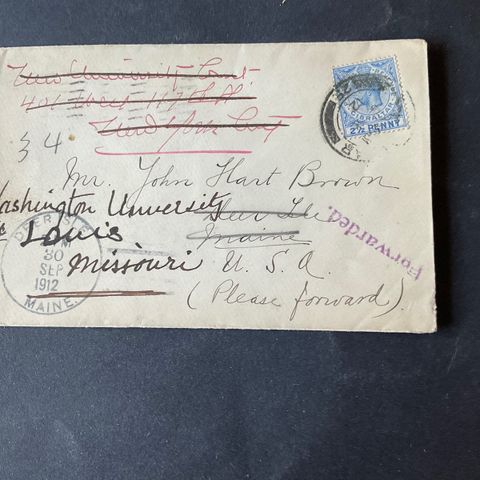 New University Court
401 West 117th St
New York City
34
GIBRALTAR
2½ PENNY
Mr. John Hart Brown
Washington University
Deer Isle
Louis
Maine
Missouri
U. S. A.
(Please forward).
Forwarded.
DEER ISLE
30
SEP
1912
MAINE.